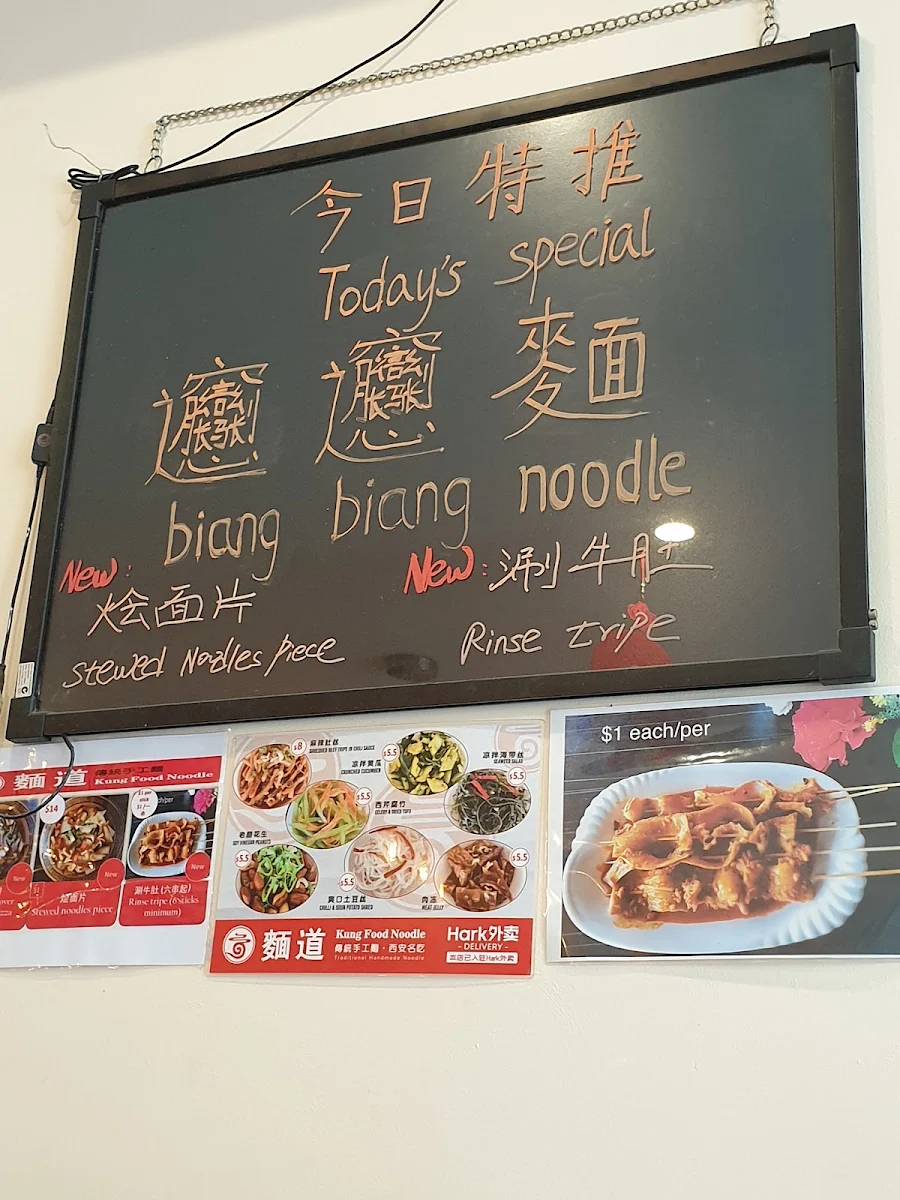 今日特推
Today's special
𰻞𰻞麵
biang biang noodle
New: 烩面片
Stewed Noodles piece
New: 涮牛肚
Rinse tripe
麵道 傳統手工麵
Kung Food Noodle
$14
New
烩面片
Stewed noodles piece
New
涮牛肚(六串起)
Rinse tripe (6 sticks
minimum)
$8
麻辣肚丝
SHREDDED BEEF TRIPE IN CHILI SAUCE
$5.5
凉拌黄瓜
CRUNCHED CUCUMBER
$5.5
凉拌海带丝
SEAWEED SALAD
$5.5
西芹腐竹
CELERY & DRIED TOFU
$5.5
老醋花生
SOY VINEGAR PEANUTS
$5.5
爽口土豆丝
CHILLI & SOUR POTATO SHRED
$5.5
肉冻
MEAT JELLY
麵道
Kung Food Noodle
傳統手工麵·西安名吃
Traditional Handmade Noodle
Hark外卖
- DELIVERY -
本店已入驻Hark外卖
$1 each/per